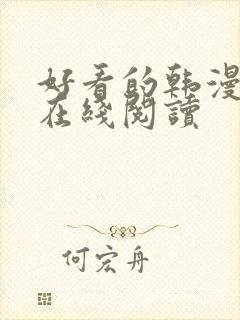 好看的韩漫
在綫閱讀
何宏舟